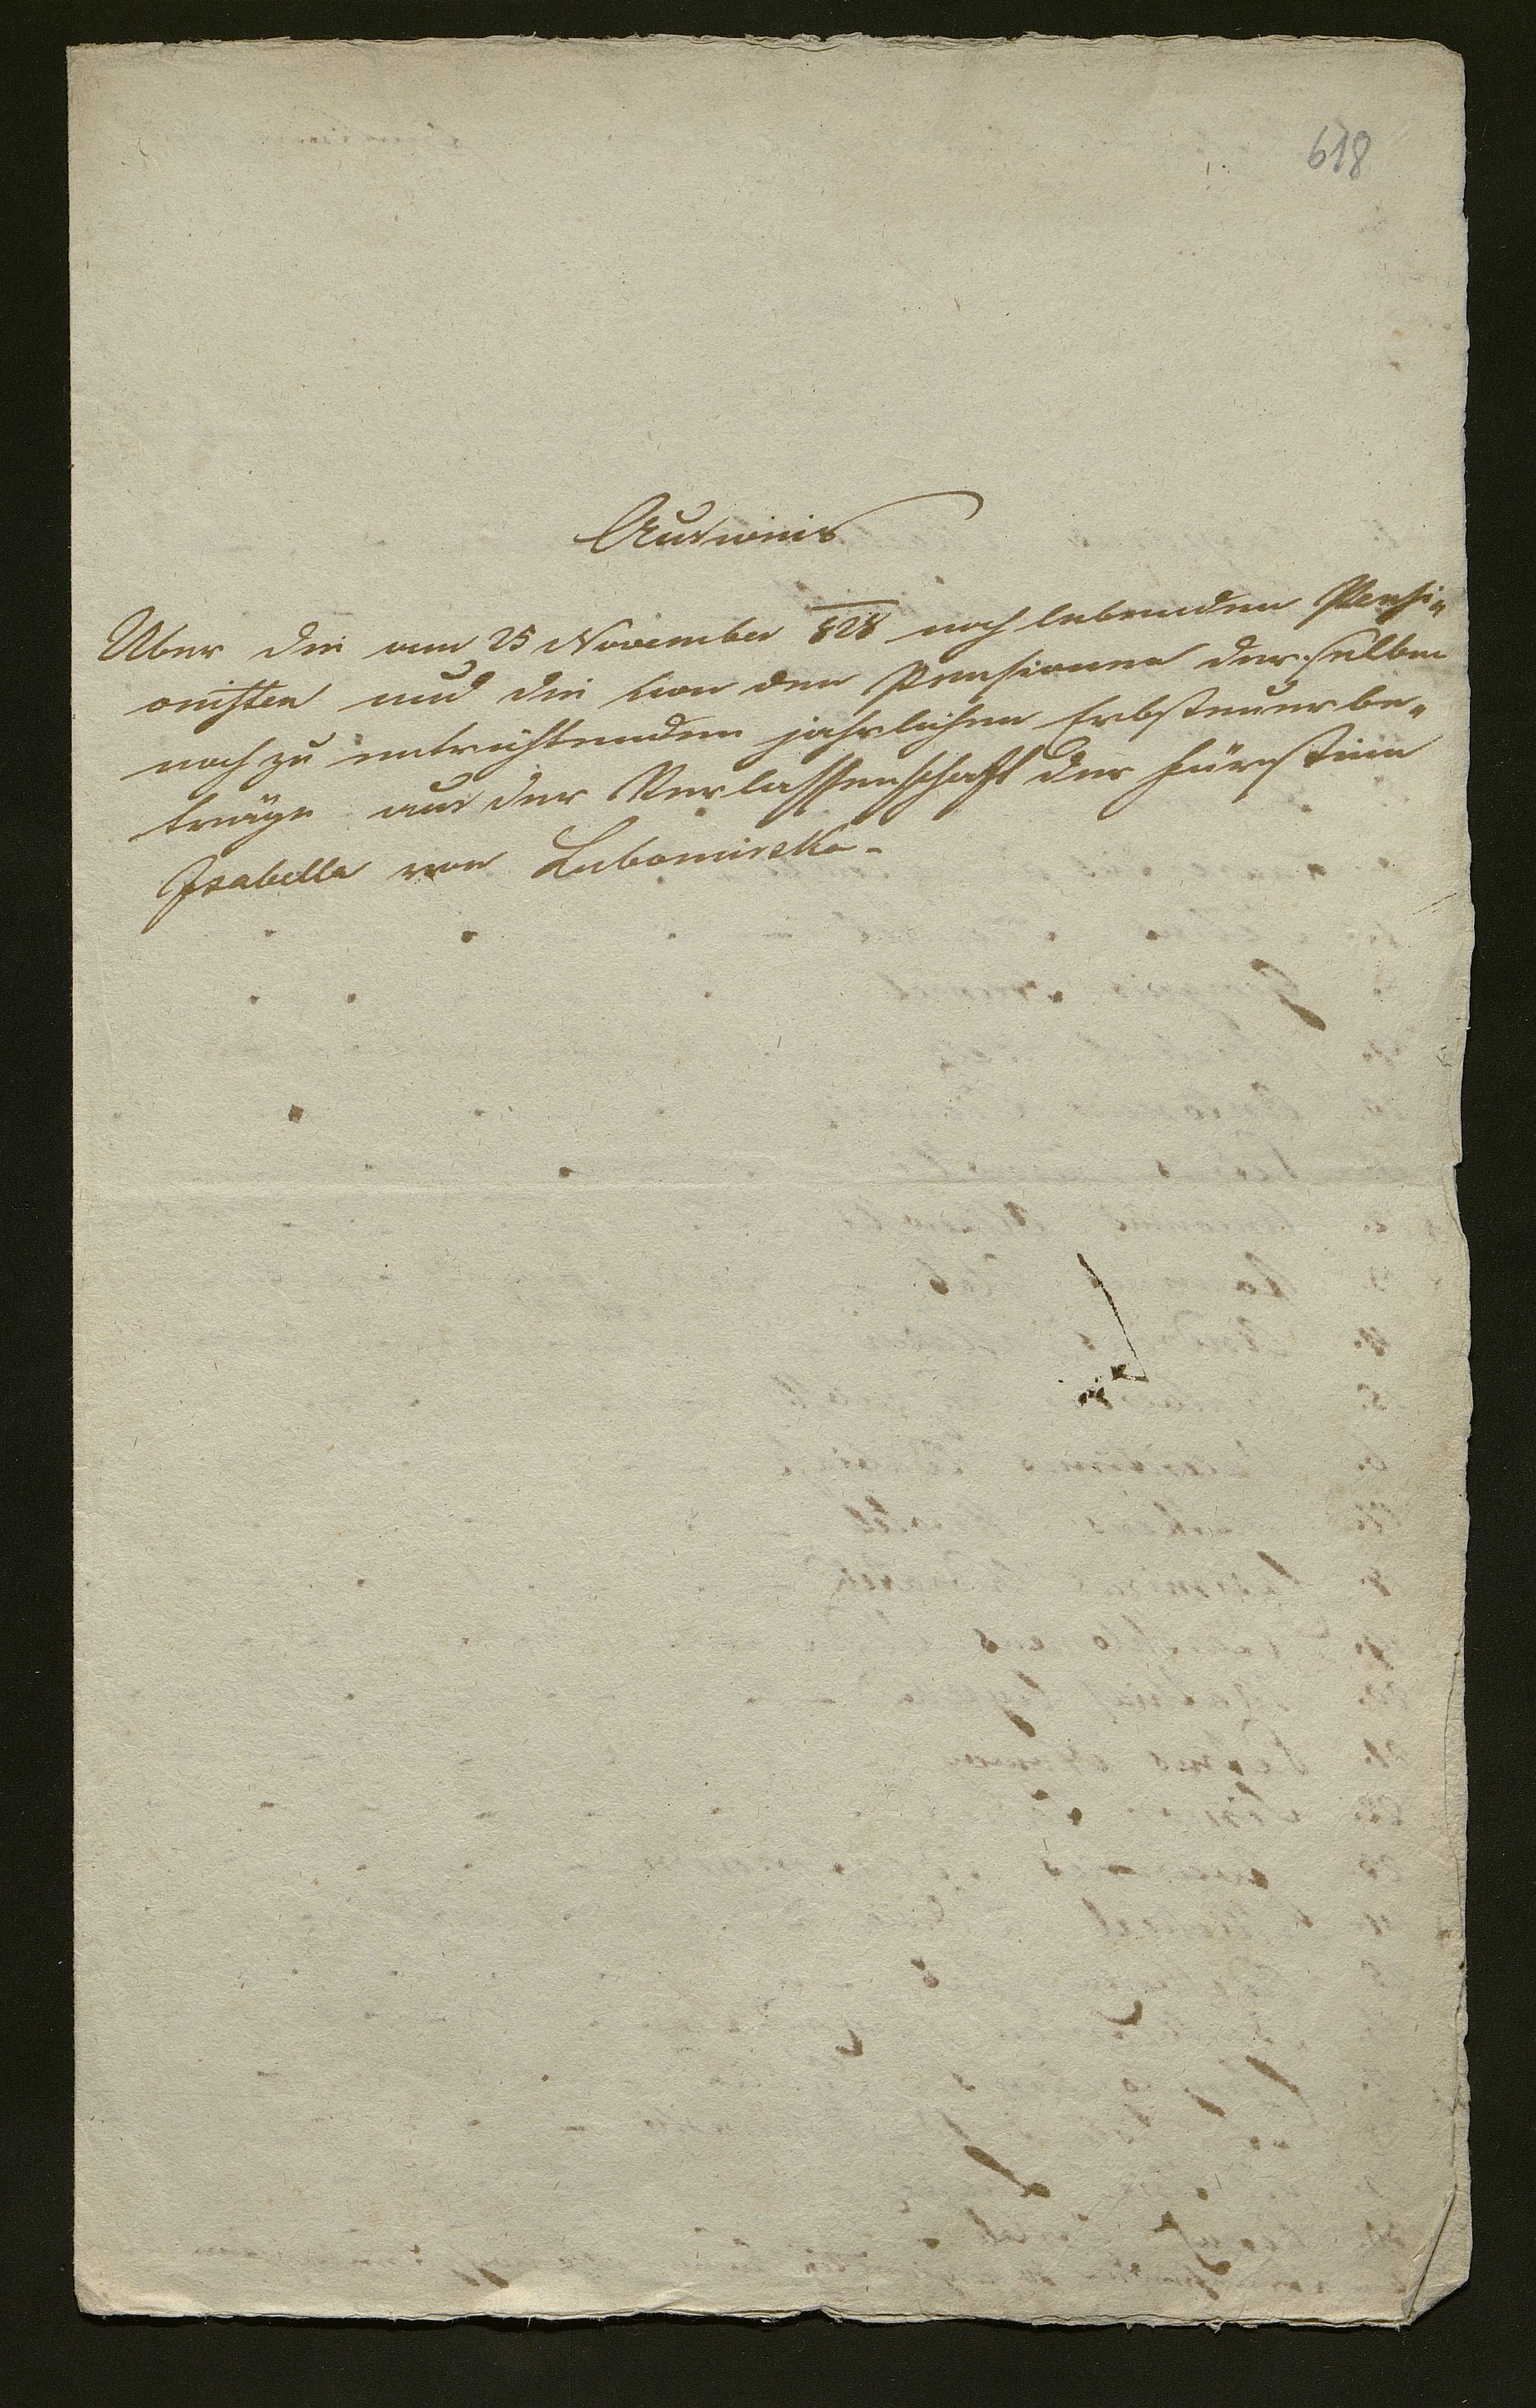 618
Ausweis
Uber die am 25 November 828 noch lebenden Pensi-
onisten und die von den Pensionen derselben
noch zu entrichtenden jahrlichen Erbsteuerbe-
träge aus der Verlassenschaft der Fürstinn
Isabella von Lubomirska.